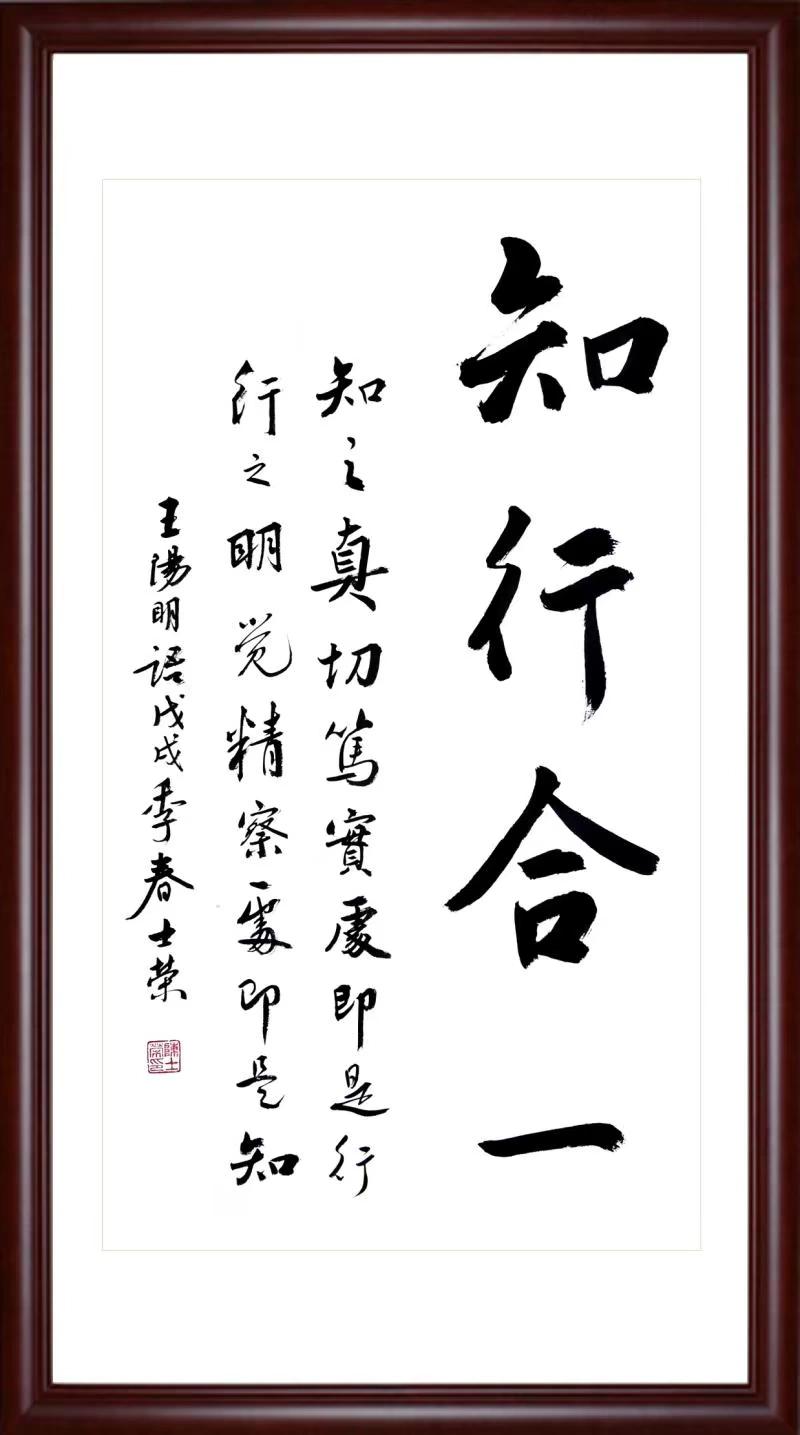 知行合一
知之真切篤實處即是行
行之明觉精察處即是知
王陽明語戊戌季春士荣
陳士荣印